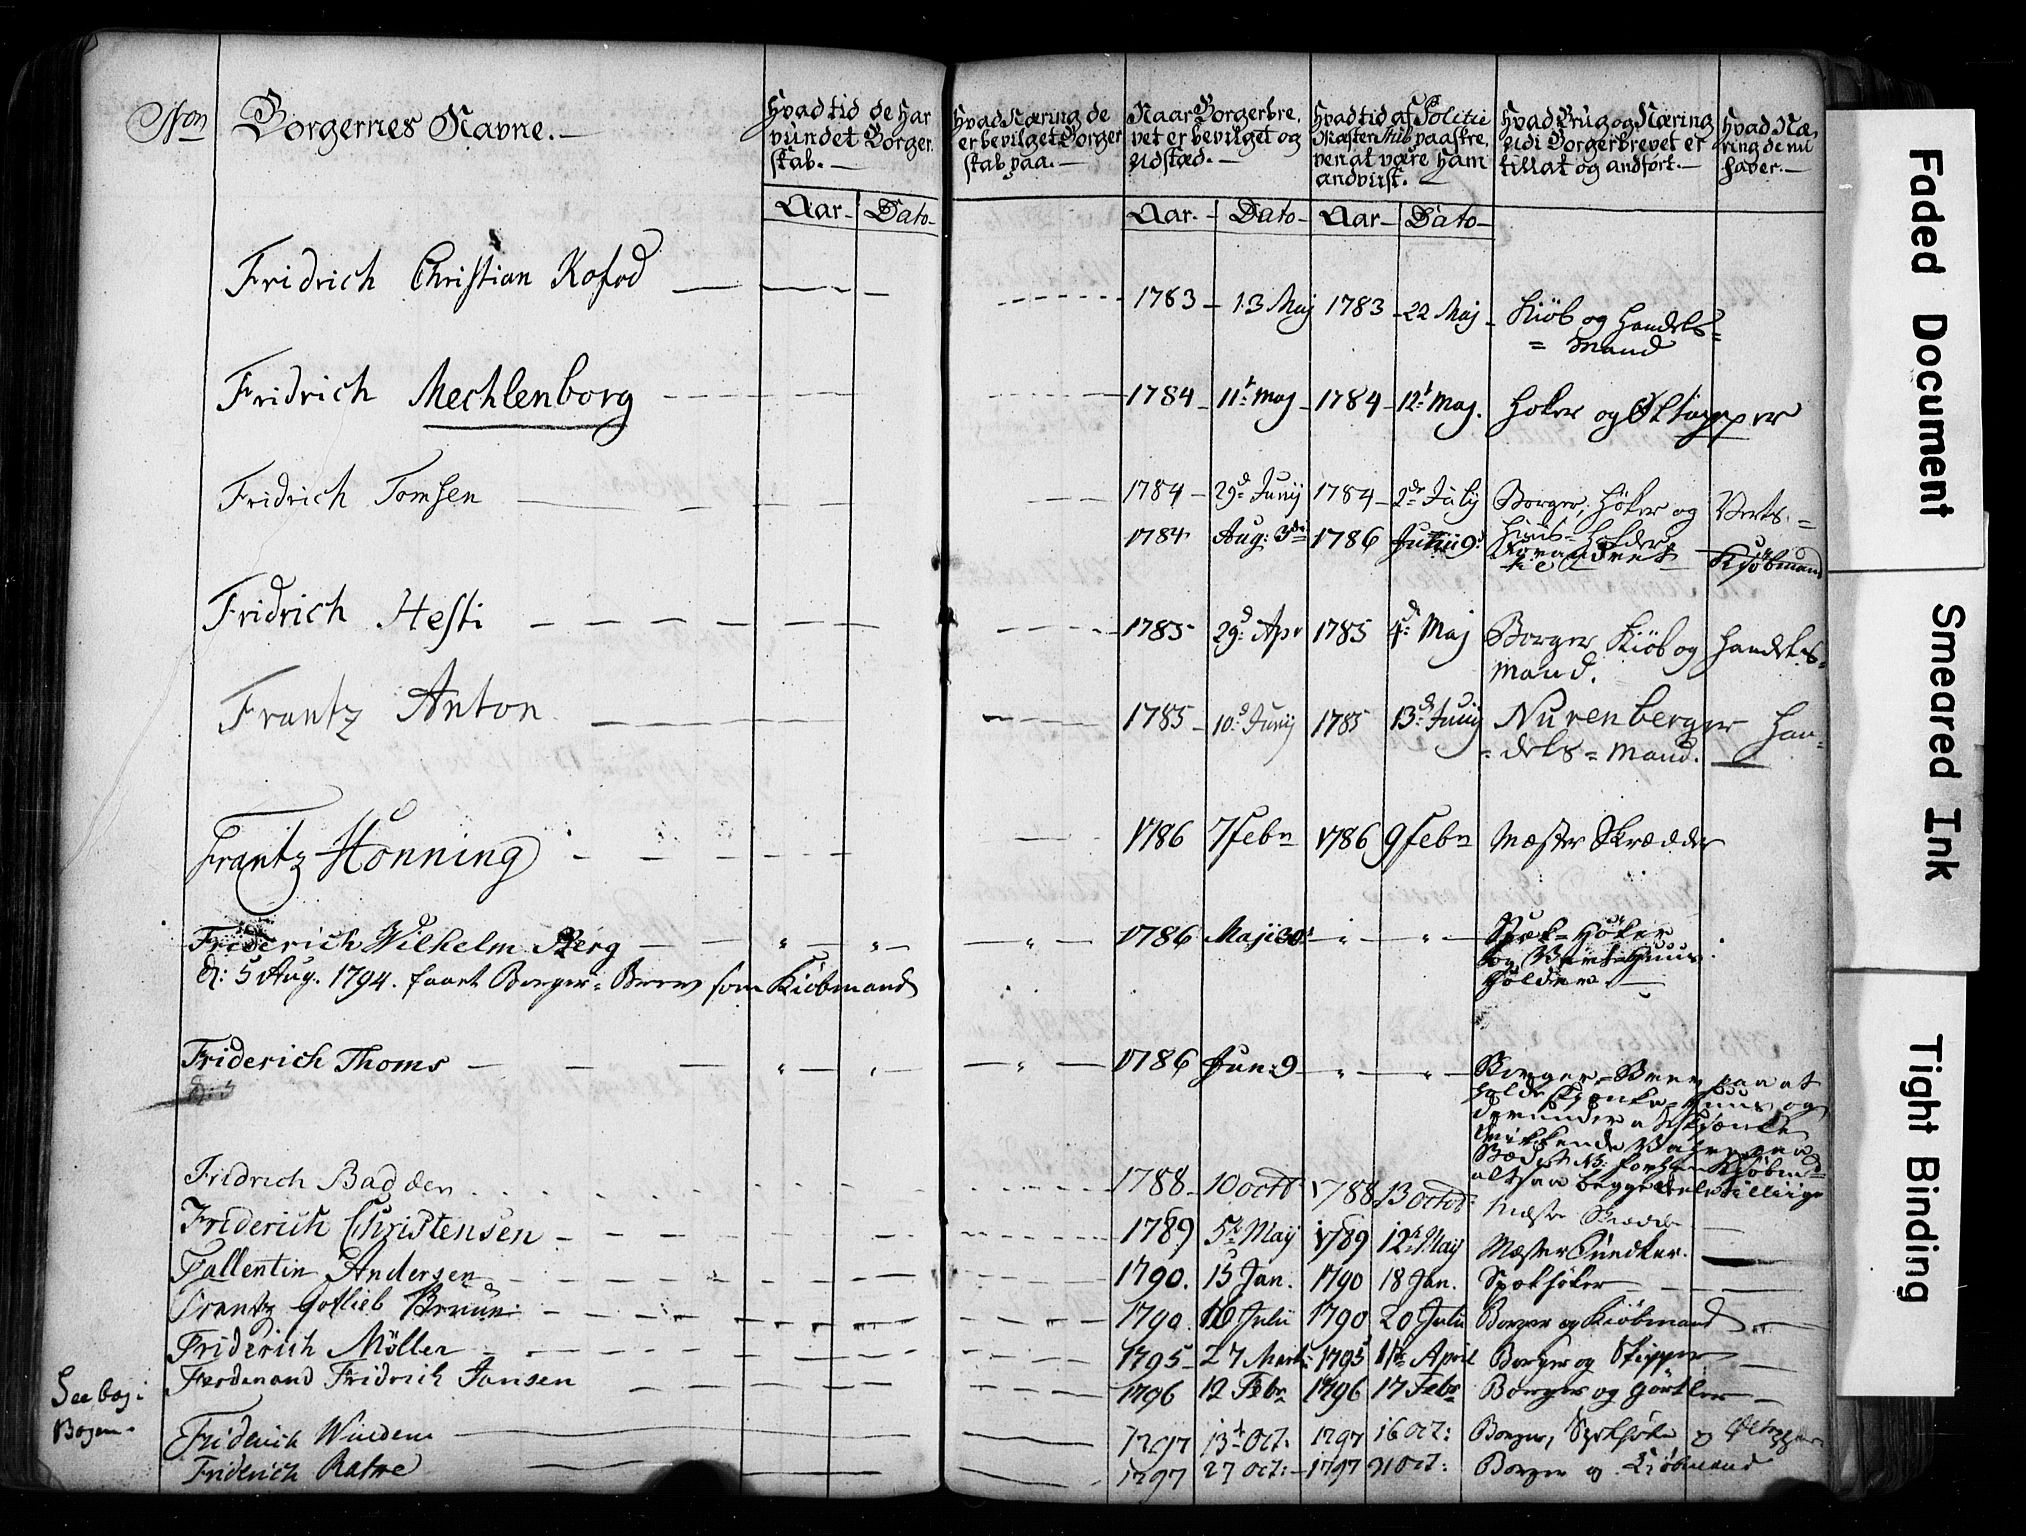 Non
Borgernes Navne.
Hvad tid de har vundet Borgerskab.
Aar Dato
Hvad Næring de er bevilget Borgerskab paa.
Naar Borgerbrevet er bevilget og Udstæd.
Aar Dato
Hvad tid af Politie Mæsteren paaskreven at være ham andvist.
Aar Dato
Hvad Brug og Næring udi Borgerbrevet er tillat og andført.
Hvad Næring de nu haver.
Fridrich Christian Kofod 1783 13 Maj 1783 22 Maj Kiöb og Handels=
= Mand
Fridrich Mechlenborg 1784 11t Maj 1784 12t Maj. Höker og Øltapper
Fridrich Tomsen 1784 29d Junij 1784 2de July Borger, Höker og Verts=
1784 Aug: 3die 1786 Junii 9 Huus=Holder Kjöbmand
Fridrich Hesti 1785 29d Apr 1785 4d Maj Borger Kiöb og Handels=
Mand.
Frantz Anton 1785 10d Junij 1785 13d Junij Nurenberger Han=
=dels=Mand.
Frantz Hönning 1786 7 Febr 1786 9 Febr Mæster Skrædder
Friderich Wilhelm Berg " " " 1786 Maji 30 " " Spæk=Höker
og Vertshuus
holder.
d: 5 Aug. 1794. faaet Borger=Brev som Kiöbmand
Friderich Thoms " " " 1786 Jun: 9 " " Borger=Brev paa at
holde Skjenke=Huus og
derunder at Skjænke
Fridrich Badden 1788 10 octb 1788 13 octob: Mæster Skrædder
Friderich Christensen 1789 5te Maij 1789 12te Maij Mæster Snedker.
Fallentin Andersen 1790. 15 Jan. 1790 18 Jan. Spækhöker
Frantz Gotlieb Bruun 1790. 16 Julii 1790 20 Julii Borger og Kiöbmand
Friderich Möller 1795 27 Marti 1795 11te April Borger og Skipper
Ferdinand Fridrich Jansen 1796 12 Febr 1796 17 Febr Borger og Görtler
See bag i
Bogen.
Friderich 1797 13t Oct: 1797 16 Oct: Borger, Spekhöker og Øltapper
Friderich 1797 27 Oct: 1797 31 Oct: Borger og Kiöbmand
Faded Document
Smeared Ink
Tight Binding